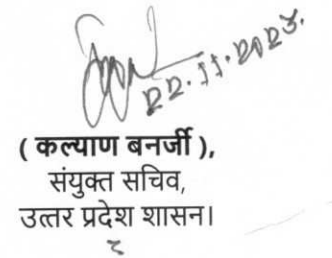 22.11.2023.
( कल्याण बनर्जी ),
संयुक्त सचिव,
उत्तर प्रदेश शासन।